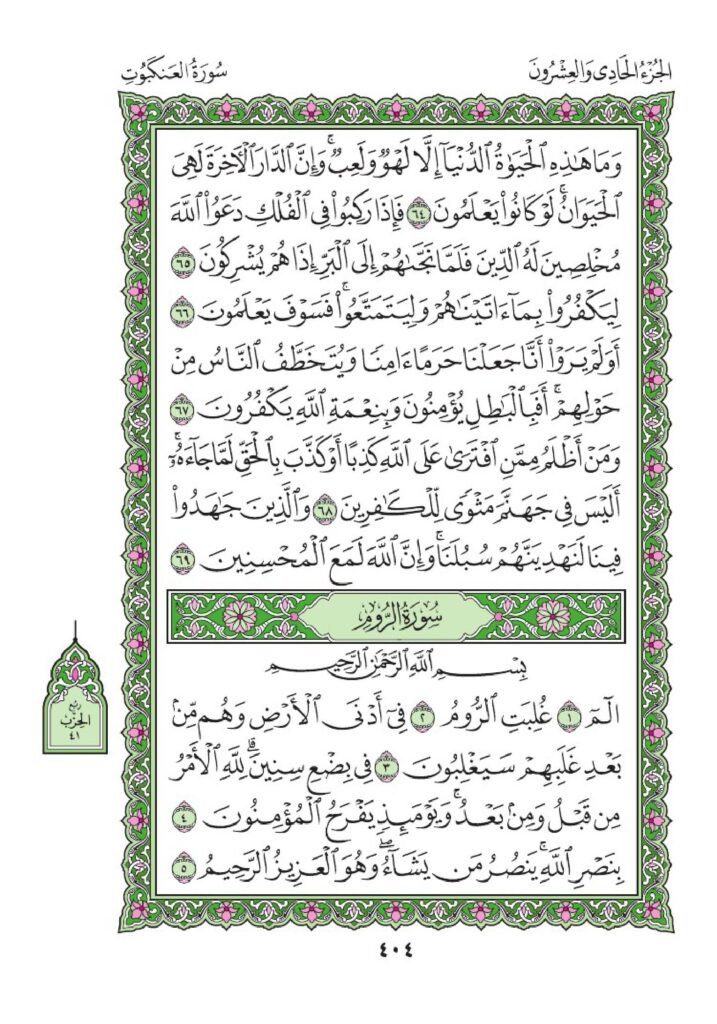 الجُزْءُ الحَادِى وَالعِشْرُونَ
سُورَةُ العَنكَبُوتِ
وَمَا هَٰذِهِ ٱلْحَيَوٰةُ ٱلدُّنْيَآ إِلَّا لَهْوٌ وَلَعِبٌ ۚ وَإِنَّ ٱلدَّارَ ٱلْأَخِرَةَ لَهِىَ
ٱلْحَيَوَانُ ۚ لَوْ كَانُوا۟ يَعْلَمُونَ ٦٤ فَإِذَا رَكِبُوا۟ فِى ٱلْفُلْكِ دَعَوُا۟ ٱللَّهَ
مُخْلِصِينَ لَهُ ٱلدِّينَ فَلَمَّا نَجَّىٰهُمْ إِلَى ٱلْبَرِّ إِذَا هُمْ يُشْرِكُونَ ٦٥
لِيَكْفُرُوا۟ بِمَآ ءَاتَيْنَٰهُمْ وَلِيَتَمَتَّعُوا۟ ۖ فَسَوْفَ يَعْلَمُونَ ٦٦
أَوَلَمْ يَرَوْا۟ أَنَّا جَعَلْنَا حَرَمًا ءَامِنًا وَيُتَخَطَّفُ ٱلنَّاسُ مِنْ
حَوْلِهِمْ ۚ أَفَبِٱلْبَٰطِلِ يُؤْمِنُونَ وَبِنِعْمَةِ ٱللَّهِ يَكْفُرُونَ ٦٧
وَمَنْ أَظْلَمُ مِمَّنِ ٱفْتَرَىٰ عَلَى ٱللَّهِ كَذِبًا أَوْ كَذَّبَ بِٱلْحَقِّ لَمَّا جَآءَهُۥٓ ۚ
أَلَيْسَ فِى جَهَنَّمَ مَثْوًى لِّلْكَٰفِرِينَ ٦٨ وَٱلَّذِينَ جَٰهَدُوا۟
فِينَا لَنَهْدِيَنَّهُمْ سُبُلَنَا ۚ وَإِنَّ ٱللَّهَ لَمَعَ ٱلْمُحْسِنِينَ ٦٩
سُورَةُ الرُّومِ
بِسْمِ ٱللَّهِ ٱلرَّحْمَٰنِ ٱلرَّحِيمِ
الٓمٓ ١ غُلِبَتِ ٱلرُّومُ ٢ فِىٓ أَدْنَى ٱلْأَرْضِ وَهُم مِّنۢ
بَعْدِ غَلَبِهِمْ سَيَغْلِبُونَ ٣ فِى بِضْعِ سِنِينَ ۗ لِلَّهِ ٱلْأَمْرُ
مِن قَبْلُ وَمِنۢ بَعْدُ ۚ وَيَوْمَئِذٍ يَفْرَحُ ٱلْمُؤْمِنُونَ ٤
بِنَصْرِ ٱللَّهِ ۚ يَنصُرُ مَن يَشَآءُ ۖ وَهُوَ ٱلْعَزِيزُ ٱلرَّحِيمُ ٥
ربع
الحزب
٤١
٤٠٤